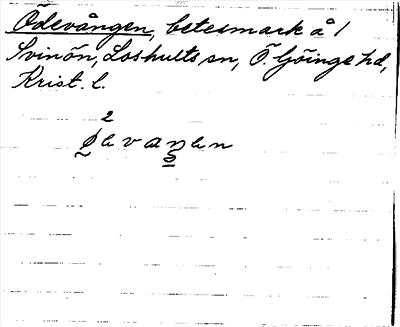 Ödevången, betesmark å 1
Svinön, Loshults sn, Ö. Göinge hd,
Krist. l.
2
øevaŋen